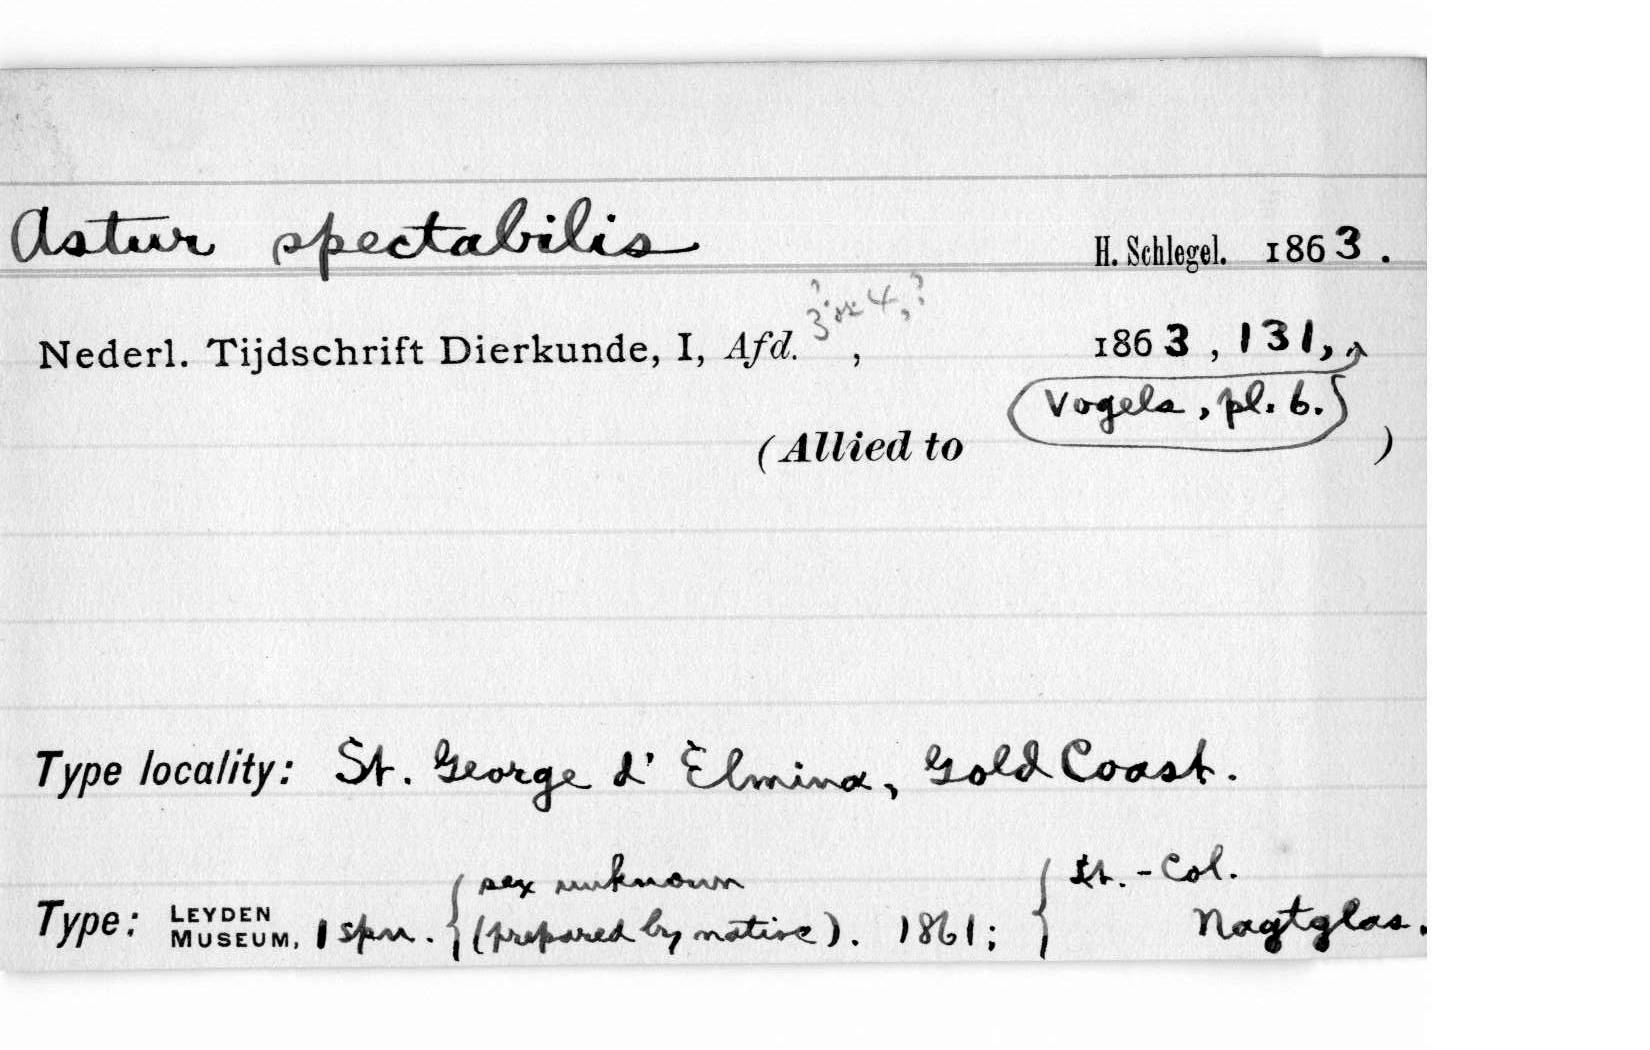 Astur spectabilis H. Schlegel. 1863.
? ?
3 or 4,
Nederl. Tijdschrift Dierkunde, I, Afd. , 1863, 131,
Vogels, pl. 6.
(Allied to )
Type locality: St. George d' Elmina, Gold Coast.
sex unknown Lt.-Col.
Type: LEYDEN MUSEUM, 1 spm. (prepared by native). 1861; Nagtglas.